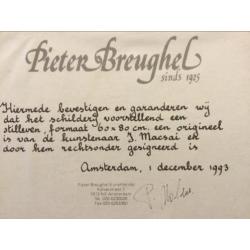 Pieter Breughel
sinds 1925
Hiermede bevestigen en garanderen wij
dat het schilderij voorstellend een
stilleven, formaat 60 x 80 cm. een origineel
is van de kunstenaar J. Macsai en
door hem rechtsonder gesigneerd is
Amsterdam, 1 december 1993
Pieter Breughel Kunsthandel
Amsterdam